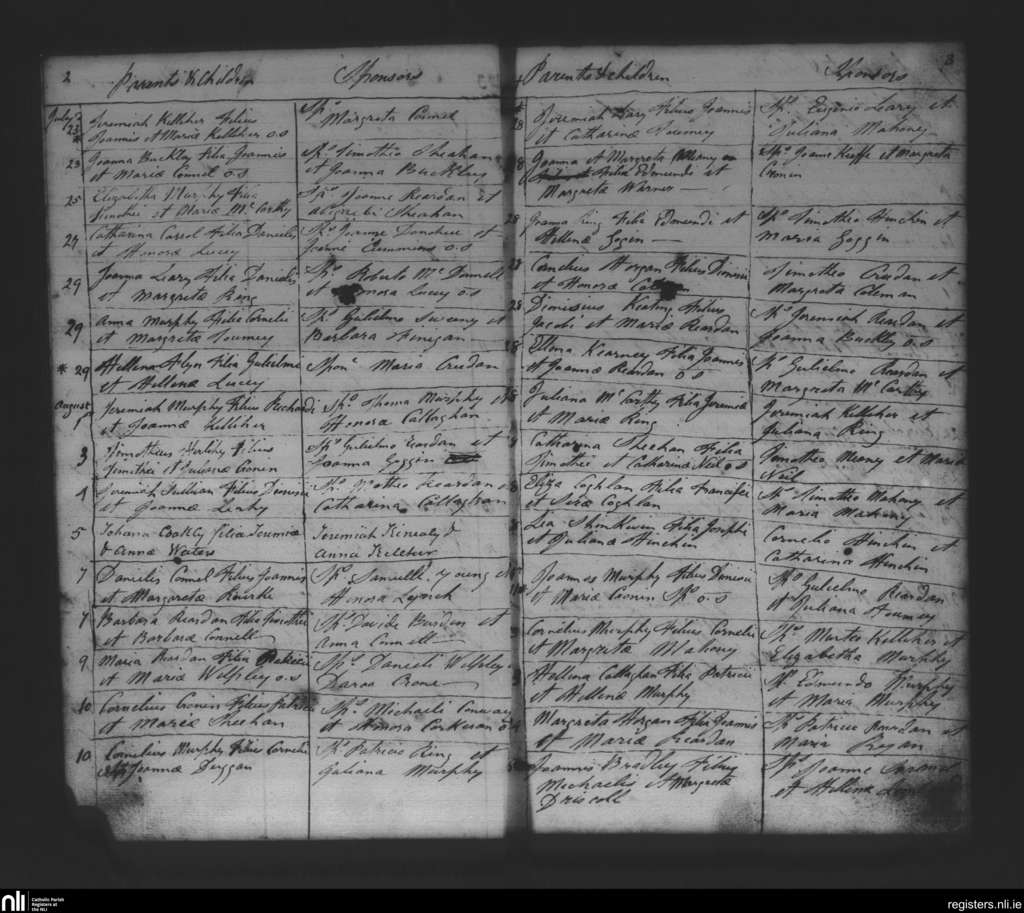 2 Parents & Children Sponsors
July 23 Jeremiah Kelliher filius Spr
Joannis et Maria Kelliher o.s Margreta Connel
23 Joanna Buckley filia Joannis Sprs Timotheo Sheahan
et Maria Connel o.s et Joanna Buckley
25 Elizabetha Murphy filia Sprs Joanne Reardan et
Timothei et Maria Mc Carthy Sheahan
27 Catharina Carol filia Danielis Sprs Joanne Donohue et
et Honora Lucey Cummins o.s
29 Joanna Leary filia Danielis Sprs Roberto Mc Donnell
et Margreta Ring et Honora Lucey o.s
29 Anna Murphy filia Cornelii Sprs Gulielmo Sweeny et
et Margreta Twomey Barbara Finigan
* 29 Hellena Alyn filia Gulielmi Sponr Maria Creedan
et Hellena Lucey
August 1 Jeremiah Murphy filius Richardi Sprs Thoma Murphy et
et Joanna Kelliher Honora Callaghan
3 Timotheus filius Sprs Gulielmo Reardan et
Timothei et Juliana Cronin Joanna Goggin
4 Jeremiah Sullivan filius Dionisii Sprs Matteo Reardan et
et Joanna Leahy Catharina Callaghan
5 Johana Coakly filia Jeremia Jeremiah Kenealy &
& Anna Waters Anna Keleher
7 Danielis Connel filius Joannis Sprs Danielle Young et
et Margareta Rourke Honora Lynch
7 Barbara Reardan filia Timothei Sprs Davide Burden et
et Barbara Connell Anna Connell
9 Maria Reardan filia Sprs Danieli Welply
et Maria Welpley o.s Crone
10 Cornelius Cronin filius Patricii Sprs Michaele Conway
et Maria Sheehan et Honora Corkeran o.s
10 Cornelius Murphy filius Cornelii Sprs Patricio Ring et
Joanna Duggan Juliana Murphy
Parents & children Sponsors 3
28 Jeremiah Leary filius Joannis Sprs Eugenio Leary et
et Catharina Twomey Juliana Mahony
Joanna et Margreta Sprs Joanne Keeffe et Margreta
filia Edmundi et Cronin
Margreta Warner
28 Joanna Ring filia Edmundi et Sprs Timotheo Hinchin et
Hellena Gogin Maria Goggin
28 Cornelius Horgan filius Dionisii Timotheo Creedan et
et Honora Margreta Coleman
28 Dionisius Keating filius Sprs Jeremiah Reardan et
Jacobi et Maria Reardan Joanna Buckley o.s
28 Ellena Kearney filia Joannis Sprs Gulielmo Reardan et
et Joanna Reardan o.s Margreta Mc Carthy
Juliana Mc Carthy filia Jeremia Jeremiah Kelliher et
et Maria Ring Juliana Ring
Catharina Sheehan filia Timotheo Meany et Maria
Timothei et Catharina Neil o.s Neil
Eliza Coghlan filia Francisci Sprs Timotheo Mahony et
et Sara Coghlan Maria Mahony
Lea Shinkwin filia Josephi Cornelio Hinchin et
et Juliana Hinchin Catharina Hinchin
Joannes Murphy filius Dionisii Sprs Gulielmo Reardan
et Maria Cronin Sprs o.s et Juliana Twomey
Cornelius Murphy filius Cornelii Sprs Matteo Kelliher et
et Margreta Mahony Elizabetha Murphy
Hellena Callaghan filia Patricii Sprs Edmundo Murphy
et Hellena Murphy et Maria Murphy
Margreta Horgan filia Joannis Sprs Patricio Reardan et
et Maria Reardan Maria Ryan
Joannis Bradley filius Sprs Joanne
Michaelis et Margreta et Hellena
Driscoll
nli Catholic Parish Registers at the NLI
registers.nli.ie